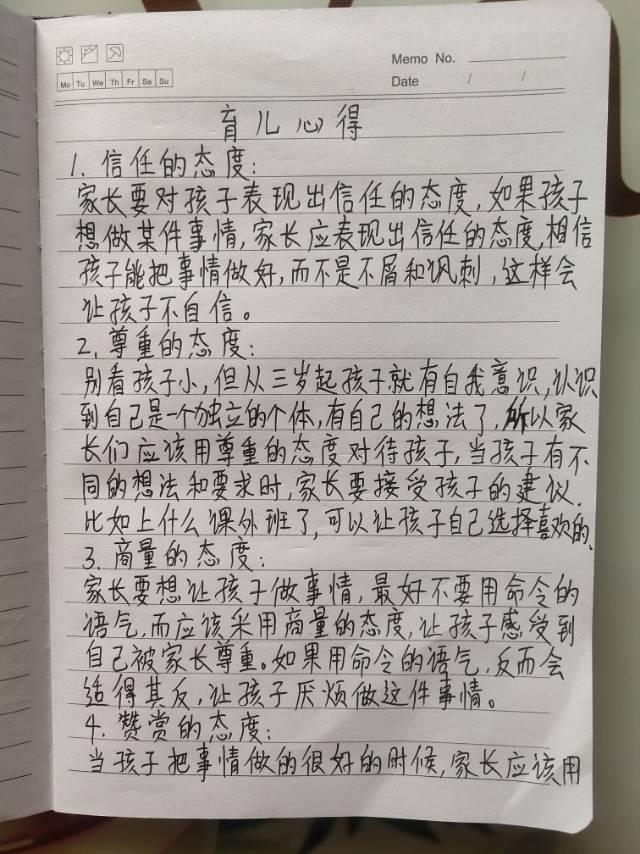 Memo No.
Mo Tu We Th Fr Sa Su
Date / /
育儿心得
1. 信任的态度:
家长要对孩子表现出信任的态度,如果孩子
想做某件事情,家长应表现出信任的态度,相信
孩子能把事情做好,而不是不屑和讽刺,这样会
让孩子不自信。
2. 尊重的态度:
别看孩子小,但从三岁起孩子就有自我意识,认识
到自己是一个独立的个体,有自己的想法了,所以家
长们应该用尊重的态度对待孩子,当孩子有不
同的想法和要求时,家长要接受孩子的建议.
比如上什么课外班了,可以让孩子自己选择喜欢的、
3. 商量的态度:
家长要想让孩子做事情,最好不要用命令的
语气,而应该采用商量的态度,让孩子感受到
自己被家长尊重。如果用命令的语气,反而会
适得其反,让孩子厌烦做这件事情。
4. 赞赏的态度:
当孩子把事情做的很好的时候,家长应该用